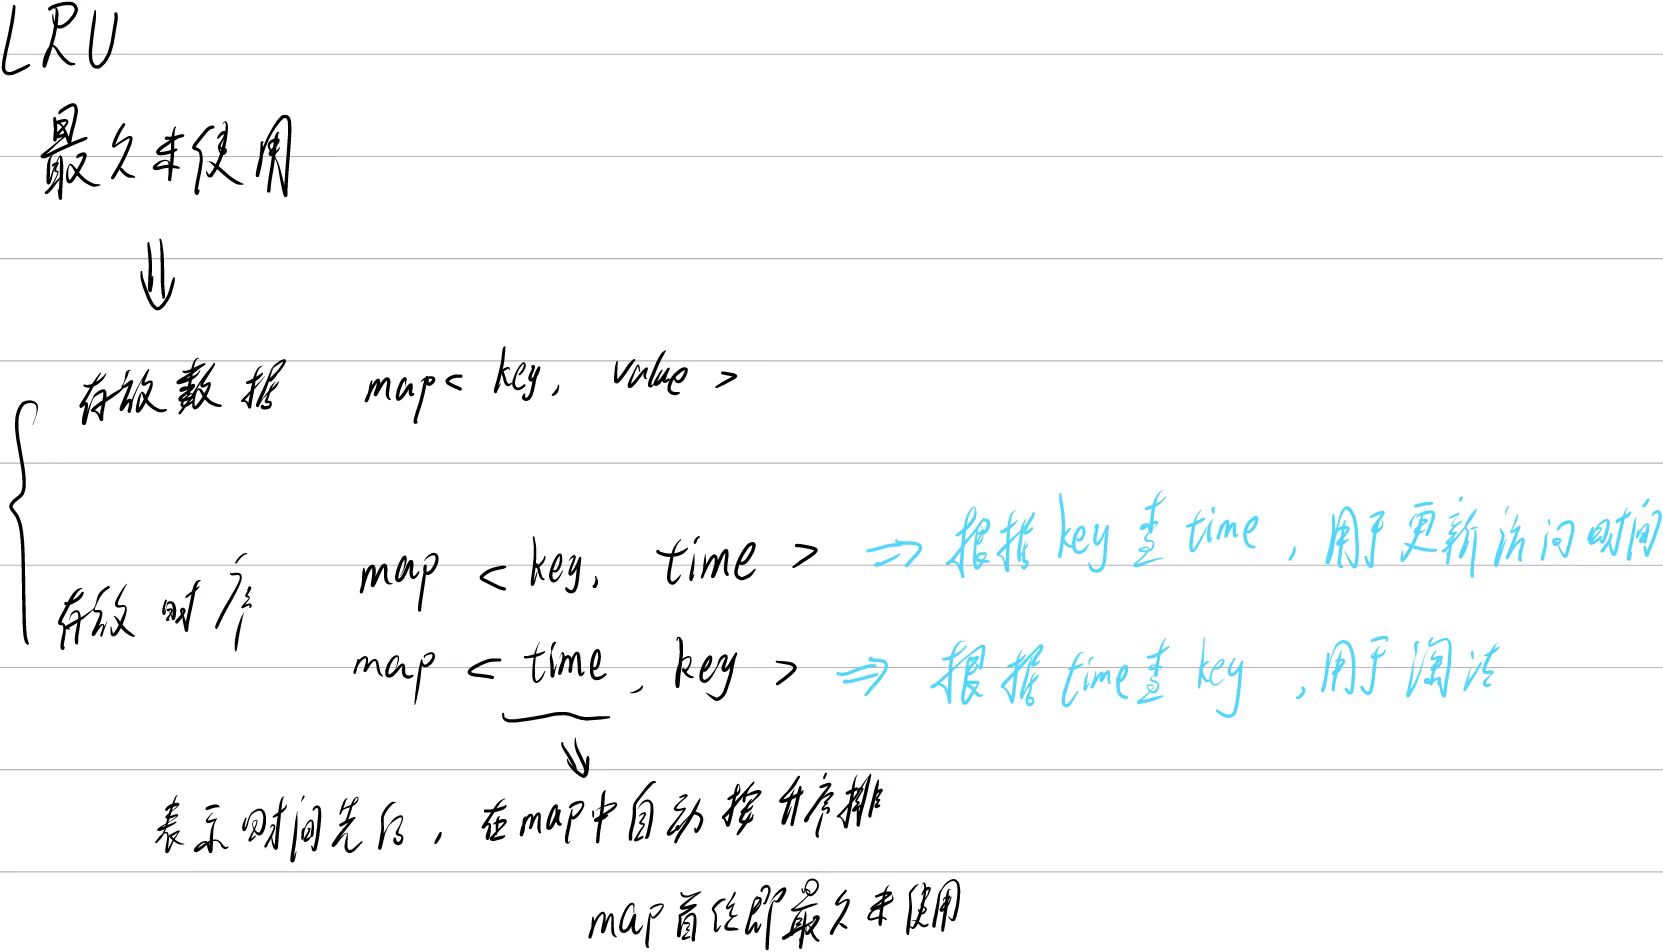 LRU
最久未使用
⇓
存放数据 map< key, value >
存放时序 map < key, time > ⇒ 根据key查time，用于更新访问时间
map < time, key > ⇒ 根据time查key，用于淘汰
表示时间先后，在map中自动按升序排
map首位即最久未使用